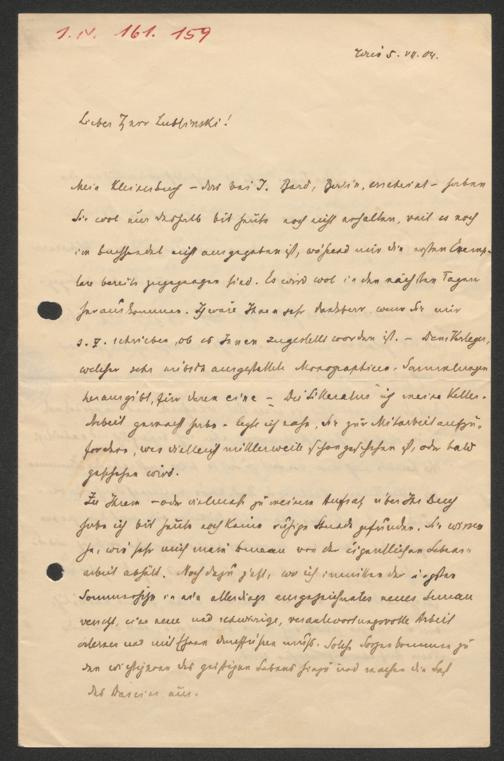 1. N. 161. 159
5. VII. 04.
Lieber Herr Lublinski!
Mein Kellerbuch – das bei J. Bard, Berlin, erscheint – haben
Sie wol nur deshalb bis heute noch nicht erhalten, weil es noch
im Buchhandel nicht ausgegeben ist, während mir die ersten Exemp-
lare bereits zugegangen sind. Es wird wol in den nächsten Tagen
herauskommen. Ich wäre Ihnen sehr dankbar, wenn Sie mir
s. Z. schrieben, ob es Ihnen zugestellt worden ist. – Dem Verleger,
welcher sehr hübsch ausgestattete Monographieen-Sammlungen
herausgibt, für deren eine – Die Litteratur – ich meine Keller-
Arbeit gemacht habe – legte ich nahe, Sie zur Mitarbeit aufzu-
fordern, was vielleicht mittlerweile schon geschehen ist, oder bald
geschehen wird.
Zu Ihrem – oder vielmehr zu meinem Aufsatz über Ihr Buch
habe ich bis heute noch keine ruhige Stunde gefunden. Sie wissen
ja, wie sehr mich mein Bureau von der eigentlichen Lebens-
arbeit abhält. Noch dazu jetzt, wo ich inmitten der
in ein allerdings ausgezeichnetes neues Bureau
versetzt, eine neue und schwierige, verantwortungsvolle Arbeit
erlernen und mit Ehren durchführen muß. Solche Sorgen kommen zu
den wichtigeren des geistigen Lebens hinzu und machen die
des Daseins aus.